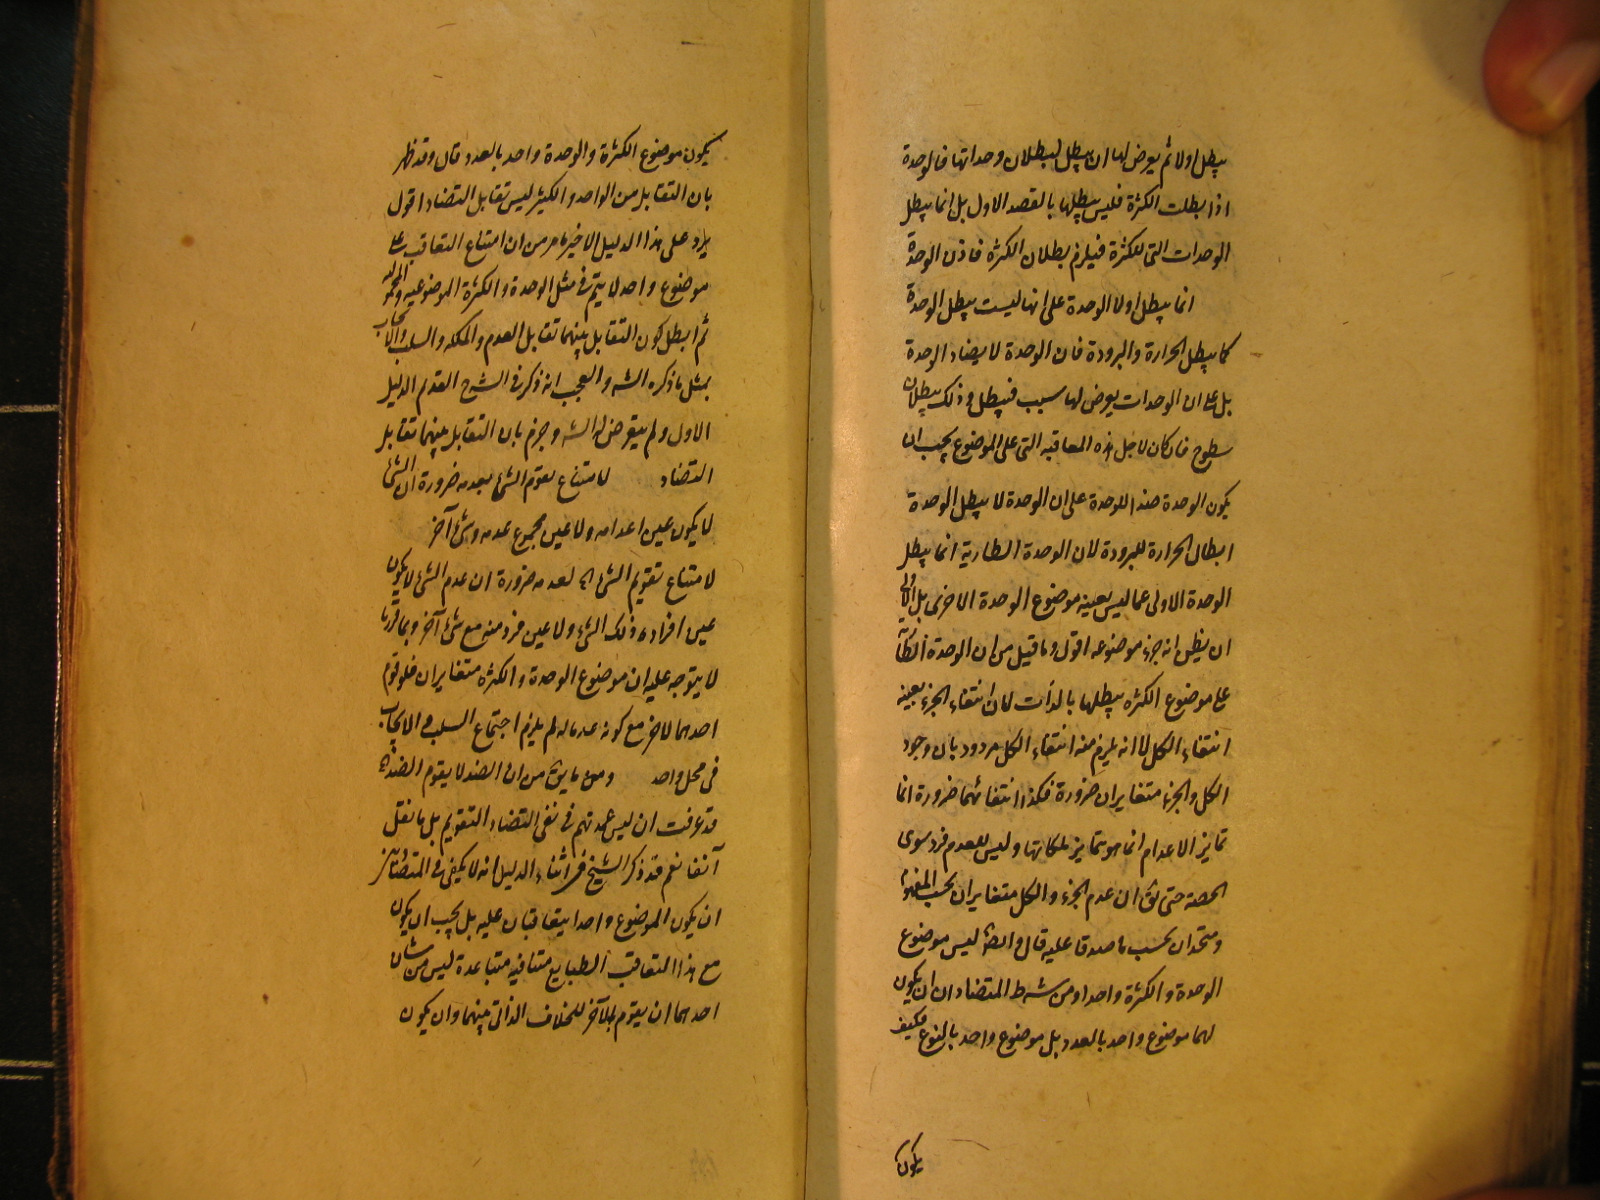 يبطل اولا ثم يعرض لها ان يبطل لبطلان وحداتها فالوحدة
اذا ابطلت الكثرة فليس يبطلها بالقصد الاول بل انما يبطل
الوحدات التى للكثرة فيلزم بطلان الكثرة فاذن الوحدة
انما يبطل اولا الوحدة على انها ليست يبطل الوحدة
كما يبطل الحرارة والبرودة فان الوحدة لا يضاد الوحدة
بل على ان الوحدات يعرض لها سبب فيبطل وذلك ببطلان
سطوح فان كان لاجل هذه المعاقبه التى على الموضوع يجب ان
يكون الوحدة ضدا للوحدة على ان الوحدة لا يبطل الوحدة
ابطال الحرارة للبرودة لان الوحدة الطارية انما يبطل
الوحدة الاولى عما ليس بعينه موضوع الوحدة الاخرى بل الاولى
ان يظن انه جزء موضوعه اقول وما قيل من ان الوحدة الطارية
على موضوع الكثره يبطلها بالذات لان انتفاء الجزء بعينه
انتفاء الكل لا انه يلزم منه انتفاء الكل مردود بان وجود
الكل والجزء متغايران ضرورة فكذا انتفائهما ضرورة انما
تمايز الاعدام انما هو بتمايز ملكاتها وليس للعدم فرد سوى
الحصة حتى يق ان عدم الجزء والكل متغايران بحسب المفهوم
ومتحدان بحسب ما صدقا عليه قال وايضا ليس موضوع
الوحدة والكثرة واحدا ومن شرط المتضادان ان يكون
لهما موضوع واحد بالعدد بل موضوع واحد بالنوع فكيف
يكون
يكون موضوع الكثرة والوحدة واحد بالعدد قال وقد ظهر
بان التقابل بين الواحد والكثير ليس تقابل التضاد اقول
يرد على هذا الدليل الاخير ما مر من ان امتناع التعاقب على
موضوع واحد لا يتم فى مثل الوحدة والكثرة الموضوعيه والمحموليه
ثم ابطل كون التقابل بينهما تقابل العدم والملكه والسلب والايجاب
بمثل ما ذكره الشه والعجب انه ذكر فى الشرح القديم الدليل
الاول ولم يتعرض له الشه وجزم بان التقابل بينهما تقابل
التضاد لامتناع تقوم الشئ بعدمه ضرورة ان الشئ
لا يكون عين اعدامه ولا عين مجموع عدمه وشئ آخر
لامتناع تقويم الشئ بعدمه ضرورة ان عدم الشئ لا يكون
عين افراد ذلك الشئ ولا عين فرد منه مع شئ آخر وبما قررنا
لا يتوجه عليه ان موضوع الوحدة والكثره متغايران فلو قوم
احدهما الاخر مع كونه عدما له لم يلزم اجتماع السلب والايجاب
فى محل واحد وما يق من ان الضد لا يقوم الضد
قد عرفت ان ليس عمدتهم فى نفى التضاد التقويم بل ما نقل
آنفا نعم قد ذكر الشيخ فى اثناء الدليل انه لا يكفى فى المتضادين
ان يكون الموضوع واحدا يتعاقبان عليه بل يجب ان يكون
مع هذا التعاقب الطبايع متنافيه متباعدة ليس من شان
احدهما ان يقوم بالآخر للخلاف الذاتى بينهما وان يكون